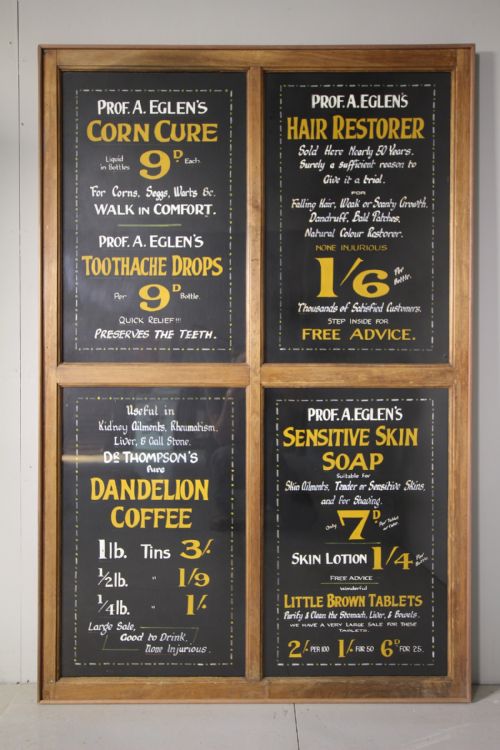 PROF. A. EGLEN'S
CORN CURE
Liquid in Bottles 9D. Each.
For Corns, Seggs, Warts &c.
WALK IN COMFORT.
PROF. A. EGLEN'S
TOOTHACHE DROPS
Per 9D Bottle.
QUICK RELIEF!!!
PRESERVES THE TEETH.
PROF. A. EGLEN'S
HAIR RESTORER
Sold Here Nearly 50 Years.
Surely a sufficient reason to
Give it a trial.
FOR
Falling Hair, Weak or Scanty Growth,
Dandruff, Bald Patches,
Natural Colour Restorer.
NONE INJURIOUS
1/6 Per Bottle.
Thousands of Satisfied Customers.
STEP INSIDE FOR
FREE ADVICE.
Useful in
Kidney Ailments, Rheumatism,
Liver, & Gall Stone.
DR THOMPSON'S
Pure
DANDELION
COFFEE
1lb. Tins 3/-
½lb. " 1/9
¼lb. " 1/-
Large Sale,
Good to Drink,
None Injurious.
PROF. A. EGLEN'S
SENSITIVE SKIN
SOAP
Suitable for
Skin Ailments, Tender or Sensitive Skins,
and for Shaving.
Only 7D. Per Tablet
SKIN LOTION 1/4 Per Bottle.
FREE ADVICE
Wonderful
LITTLE BROWN TABLETS
Purify & Clean the Stomach, Liver, & Bowels.
WE HAVE A VERY LARGE SALE FOR THESE
TABLETS.
2/- PER 100 1/- FOR 50 6D FOR 25.